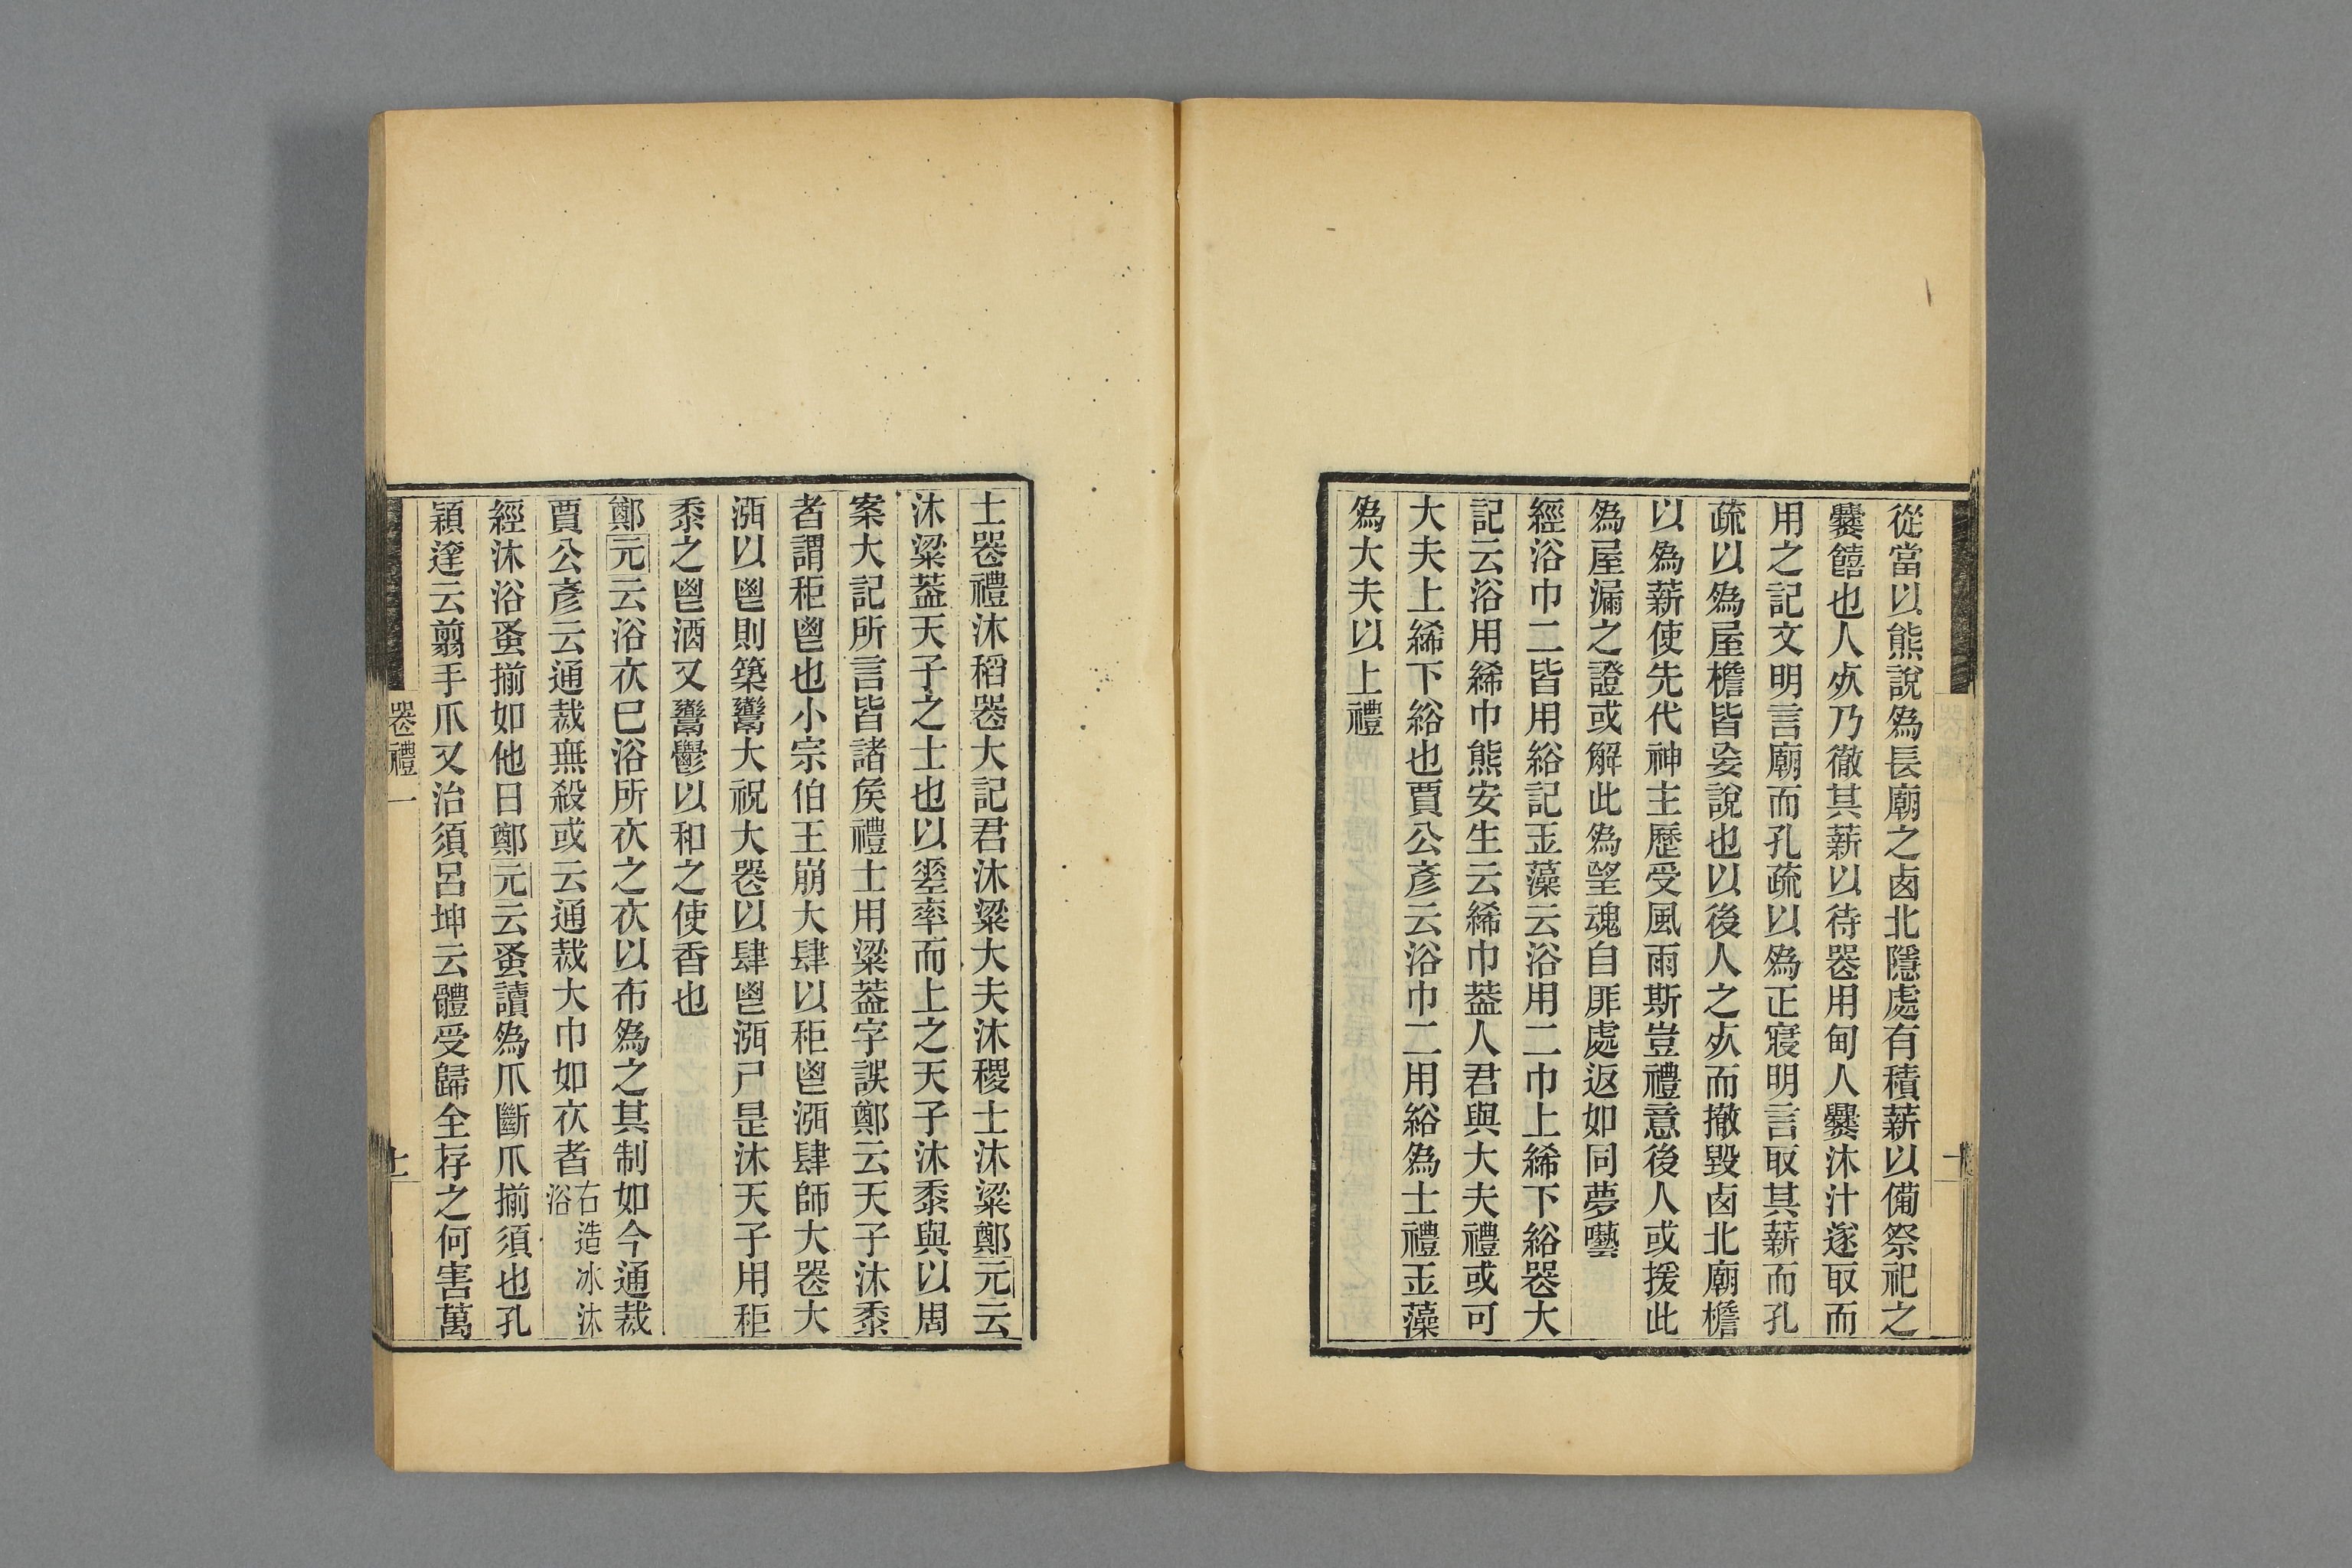 從當以熊說爲長廟之西北隱處有積薪以備祭祀之
爨饎也人死乃徹其薪以待喪用甸人爨沐汁遂取而
用之記文明言廟而孔疏以爲正寢明言取其薪而孔
疏以爲屋檐皆妄說也以後人之死而撤毀西北廟檐
以爲薪使先代神主歷受風雨斯豈禮意後人或援此
爲屋漏之證或解此爲望魂自厞處返如同夢囈
經浴巾二皆用綌記玉藻云浴用二巾上絺下綌喪大
記云浴用絺巾熊安生云絺巾蓋人君與大夫禮或可
大夫上絺下綌也賈公彥云浴巾二用綌爲士禮玉藻
爲大夫以上禮
士喪禮沐稻喪大記君沐粱大夫沐稷士沐粱鄭元云
沐粱蓋天子之士也以差率而上之天子沐黍與以周
案大記所言皆諸矦禮士用粱蓋字誤鄭云天子沐黍
者謂秬鬯也小宗伯王崩大肆以秬鬯湎肆師大喪大
湎以鬯則築鬻大祝大喪以肆鬯湎尸是沐天子用秬
黍之鬯酒又鬻鬱以和之使香也
鄭元云浴衣巳浴所衣之衣以布爲之其制如今通裁
賈公彥云通裁無殺或云通裁大巾如衣者右造冰沐浴
經沐浴蚤揃如他日鄭元云蚤讀爲爪斷爪揃須也孔
穎達云翦手爪又治須呂坤云體受歸全存之何害萬
喪禮一
十一